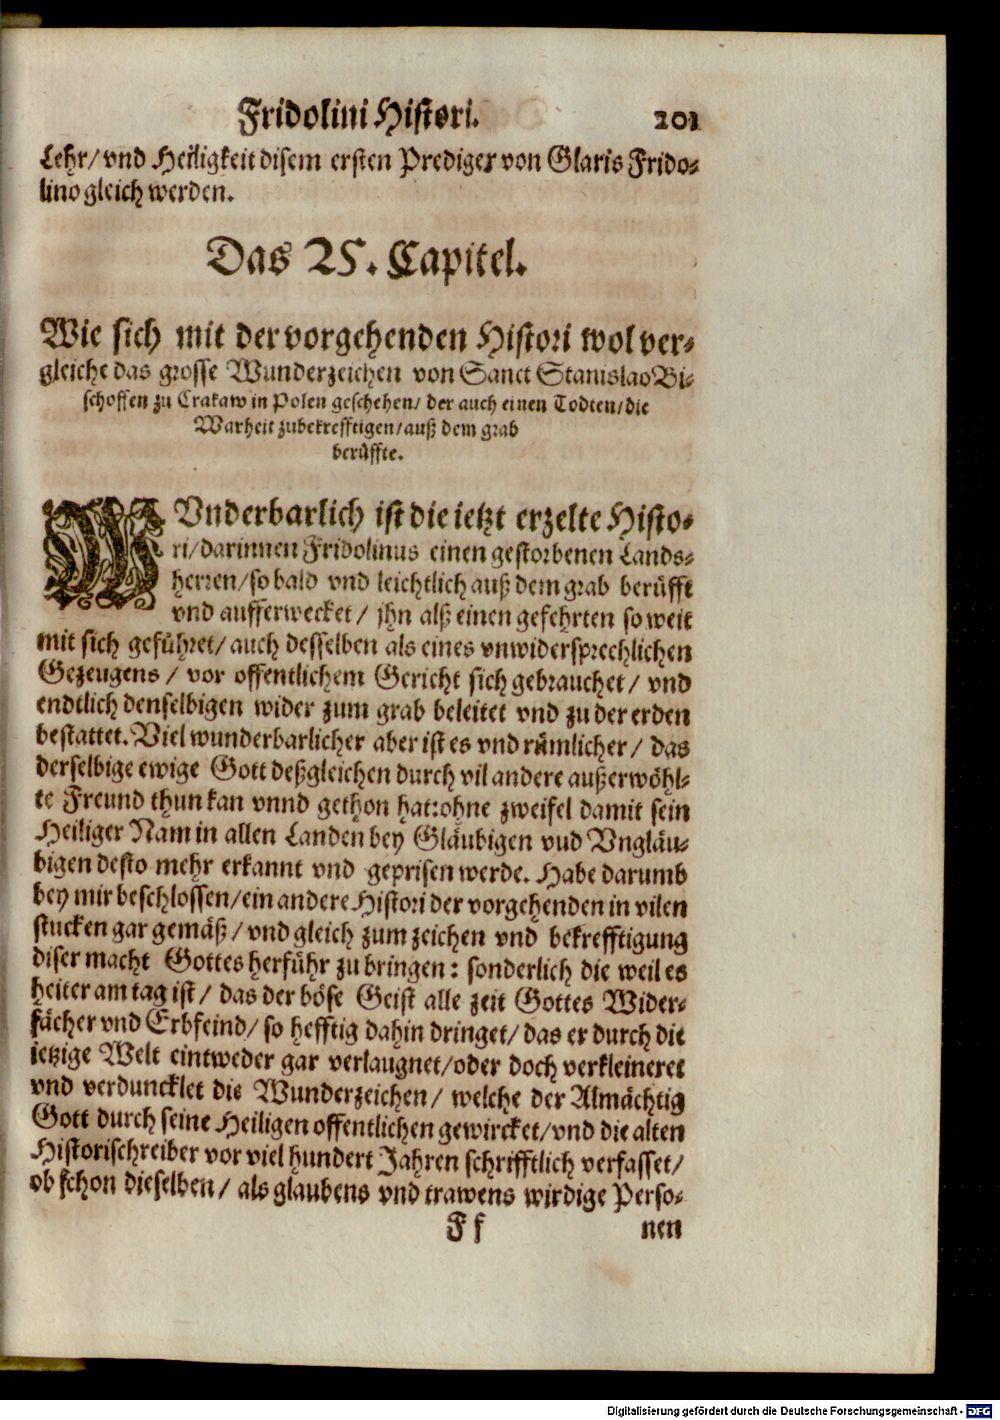 Fridolini Histori. 201
Lehr/ vnd Heiligkeit disem ersten Prediger von Glaris Frido-
lino gleich werden.
Das 25. Capitel.
Wie sich mit der vorgehenden Histori wol ver-
gleiche das grosse Wunderzeichen von Sanct Stanislao Bi-
schoffen zu Crakaw in Polen geschehen/ der auch einen Todten/ die
Warheit zubekrefftigen/ auß dem grab
berüffte.
WVnderbarlich ist die ietzt erzelte Histo-
ri/ darinnen Fridolinus einen gestorbenen Lands-
herren/ so bald vnd leichtlich auß dem grab berüfft
vnd aufferwecket/ jhn alß einen gefehrten so weit
mit sich geführet/ auch desselben als eines vnwidersprechlichen
Gezeugens/ vor offentlichem Gericht sich gebrauchet/ vnd
endtlich denselbigen wider zum grab beleitet vnd zu der erden
bestattet. Viel wunderbarlicher aber ist es vnd rümlicher/ das
derselbige ewige Gott deßgleichen durch vil andere außerwöhl-
te Freund thun kan vnnd gethon hat: ohne zweifel damit sein
Heiliger Nam in allen Landen bey Gläubigen vud Vngläu-
bigen desto mehr erkannt vnd geprisen werde. Habe darumb
bey mir beschlossen/ ein andere Histori der vorgehenden in vilen
stucken gar gemäß/ vnd gleich zum zeichen vnd bekrefftigung
diser macht Gottes herführ zu bringen: sonderlich die weil es
heiter am tag ist/ das der böse Geist alle zeit Gottes Wider-
sächer vnd Erbfeind/ so hefftig dahin dringet/ das er durch die
ietzige Welt eintweder gar verlaugnet/ oder doch verkleineret
vnd verduncklet die Wunderzeichen/ welche der Almächtig
Gott durch seine Heiligen offentlichen gewircket/ vnd die alten
Historischreiber vor viel hundert Jahren schrifftlich verfasset/
ob schon dieselben/ als glaubens vnd trawens wirdige Perso-
F f nen
Digitalisierung gefördert durch die Deutsche Forschungsgemeinschaft - DFG